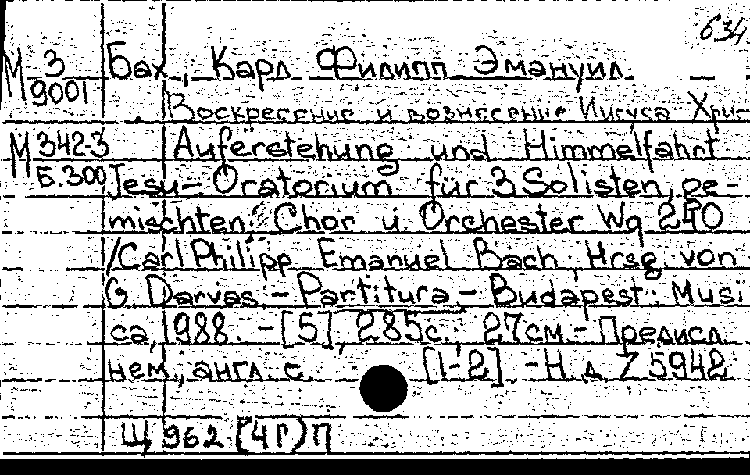 634
М 3 Бах, Карл Филипп Эмануил
9001
Воскресение и вознесение Иисуса Хри-
М 342-3 Auferstehung und Himmelfahrt
Б.300 Jesu – Oratorium für 3 Solisten, ge-
mischten Chor u. Orchester Wq 240
/Carl Philipp Emanuel Bach; Hrsg. von
G. Darvas. – Partitura. – Budapest: Musi
ca, 1988. – [5], 285с.; 27см. – Предисл.
нем., англ. с. [1-2] – Н.д. Z 5942
Щ 962 (4Г)П